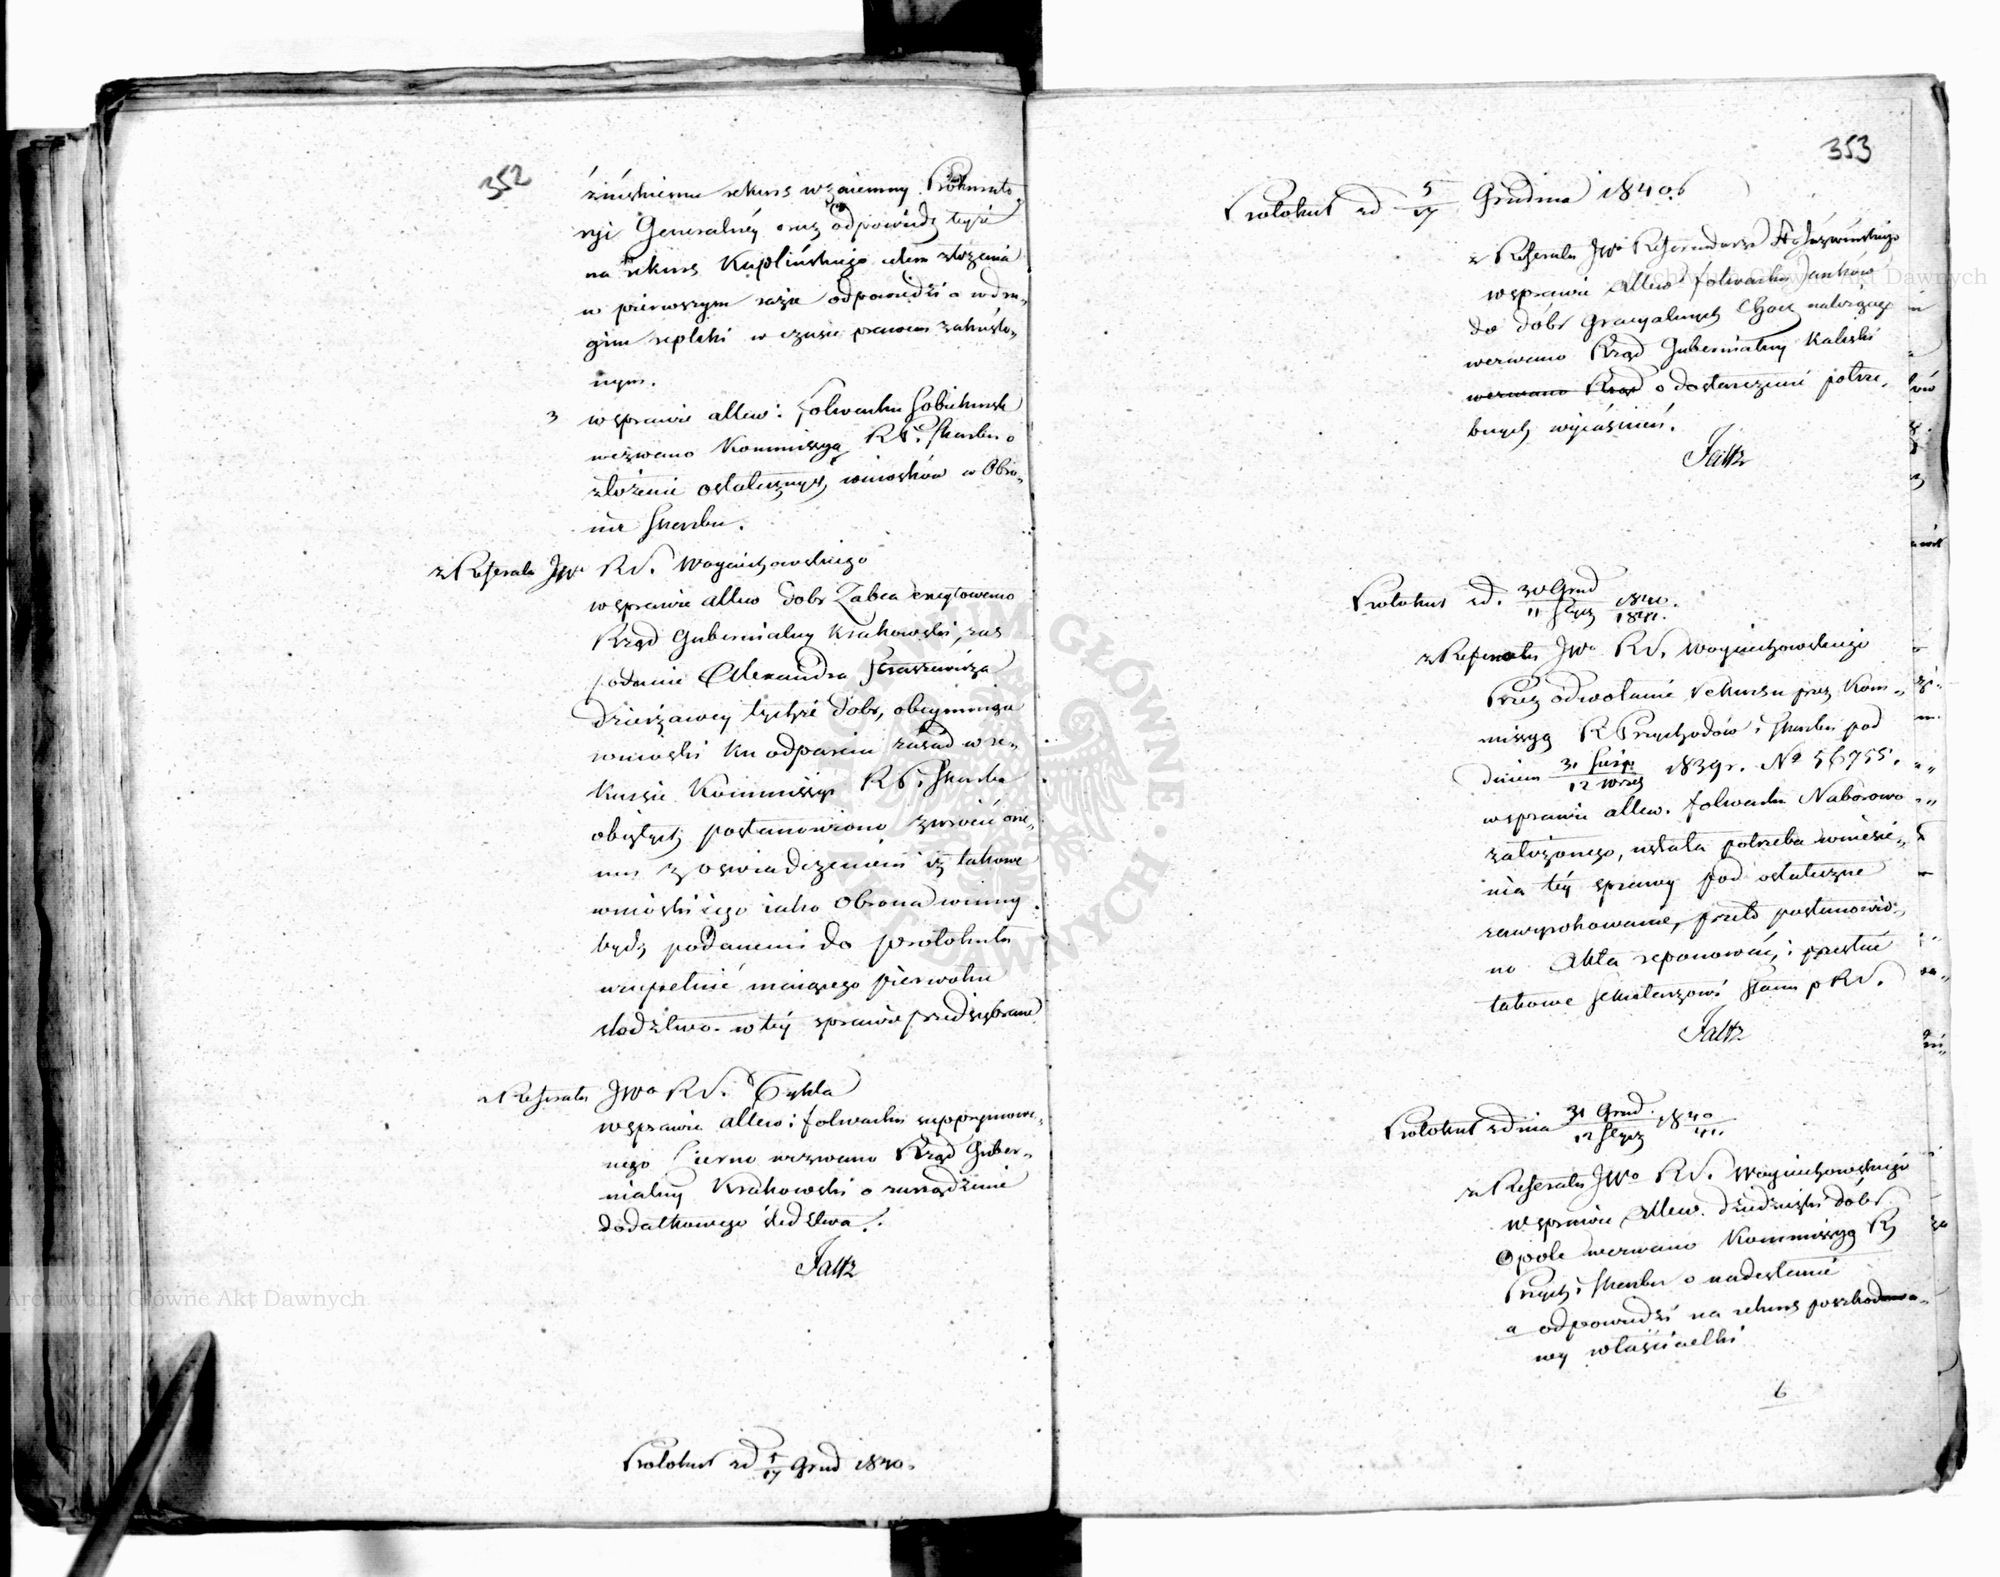 352
żińskiemu rekurs wzaiemny Prokurato
ryi Generalnéy oraz odpowiedź teyże
na rekurs Kuplińskiego celem złożenia
w pierwszym razie odpowiedzi a w dru„
gim repliki w czasie prawem zakreślo„
nym.
3 w sprawie allew: folwarku
wezwano Kommissyą RP i Skarbu o
złożenie ostatecznych wniosków w Obro„
nie Skarbu.
z Referatu JWo RS. Woyciechowskiego
w sprawie allew dóbr Żabca
Rząd Gubernialny Krakowski, zaś
podanie Alexandra Straszewicza
dzierżawcy tychże dóbr, obeymuiące
wnioski ku odparciu zasad w re„
kursie Kommissyi RP i Skarbu
obiętych postanowiono zwrócić one„
mu z oświadczeniem iż takowe
wnioski iego iako Obrona winny
bydź podanemi do protokułu
uzupełnić maiącego pierwotne
śledztwo w téy sprawie przedsiębrane
z Referatu JWo RS. Tykla
w sprawie allew: folwarku supprymowa„
nego Cierno wezwano Rząd Guber„
nialny Krakowski o zarządzenie
dodatkowego śledztwa.
Faltz
Protokuł zd 5/17 Grud 1840.
353
Protokuł zd 5/17 Grudnia 1840 r
z Referatu JWo Referendarza
w sprawie allew folwarku Janków
do dóbr Chocz należącego
wezwano Rząd Gubernialny Kaliski
wezwano Rząd o dostarczenie potrze„
bnych wyiaśnień.
Faltz
Protokuł zd. 30 Grud/11 Stycz 1840/1841.
z Referatu JWo RS. Woyciechowskiego
Przez odwołanie rekursu przez Kom„
missyą R Przychodów i Skarbu pod
dniem 31 Sierp/12 Wrześ 1839 r. No 56755.
w sprawie allew. folwarku Naborowo
założonego, ustała potrzeba wniesie„
nia téy sprawy pod ostateczne
zawyrokowanie, przeto postanowio„
no Akta reponować, i przesłać
takowe Sekretarzowi Stanu p RS.
Faltz
Protokuł z dnia 31 Grud./12 Stycz 1840/41.
z Referatu JWo RS. Woyciechowskiego
w sprawie allew. dóbr
Opole wezwano Kommissyą R
Przych i Skarbu o nadesłanie
odpowiedzi na rekurs poszkodowa„
ney właścicielki
6
Archiwum Główne Akt Dawnych
Archiwum Główne Akt Dawnych
ARCHIWUM GŁÓWNE AKT DAWNYCH